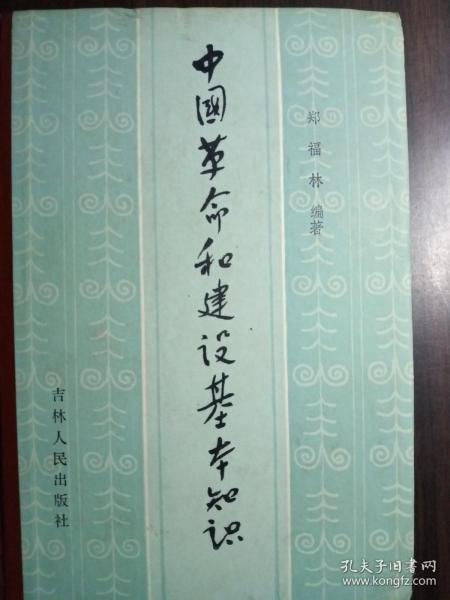 郑福林 编著
中國革命和建设基本知识
吉林人民出版社
孔夫子旧书网
www.kongfz.com